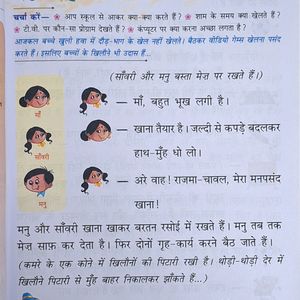 चर्चा करें – ★ आप स्कूल से आकर क्या-क्या करते हैं? ★ शाम के समय क्या खेलते हैं?
★ टी.वी. पर कौन-सा प्रोग्राम देखते हैं? ★ कंप्यूटर पर क्या करना अच्छा लगता है?
आजकल बच्चे खुली हवा में दौड़-भाग के खेल नहीं खेलते। बैठकर वीडियो गेम्स खेलना पसंद
करते हैं। इसलिए बच्चों के खिलौने भी उदास हैं...
(साँवरी और मनु बस्ता मेज़ पर रखते हैं।)
— माँ, बहुत भूख लगी है।
माँ
— खाना तैयार है। जल्दी से कपड़े बदलकर
हाथ-मुँह धो लो।
साँवरी
— अरे वाह! राजमा-चावल, मेरा मनपसंद
खाना!
मनु
मनु और साँवरी खाना खाकर बरतन रसोई में रखते हैं। मनु तब तक
मेज़ साफ़ कर देता है। फिर दोनों गृह-कार्य करने बैठ जाते हैं।
(कमरे के एक कोने में खिलौनों की पिटारी रखी है। थोड़ी-थोड़ी देर में
खिलौने पिटारी से मुँह बाहर निकालकर झाँकते हैं...)